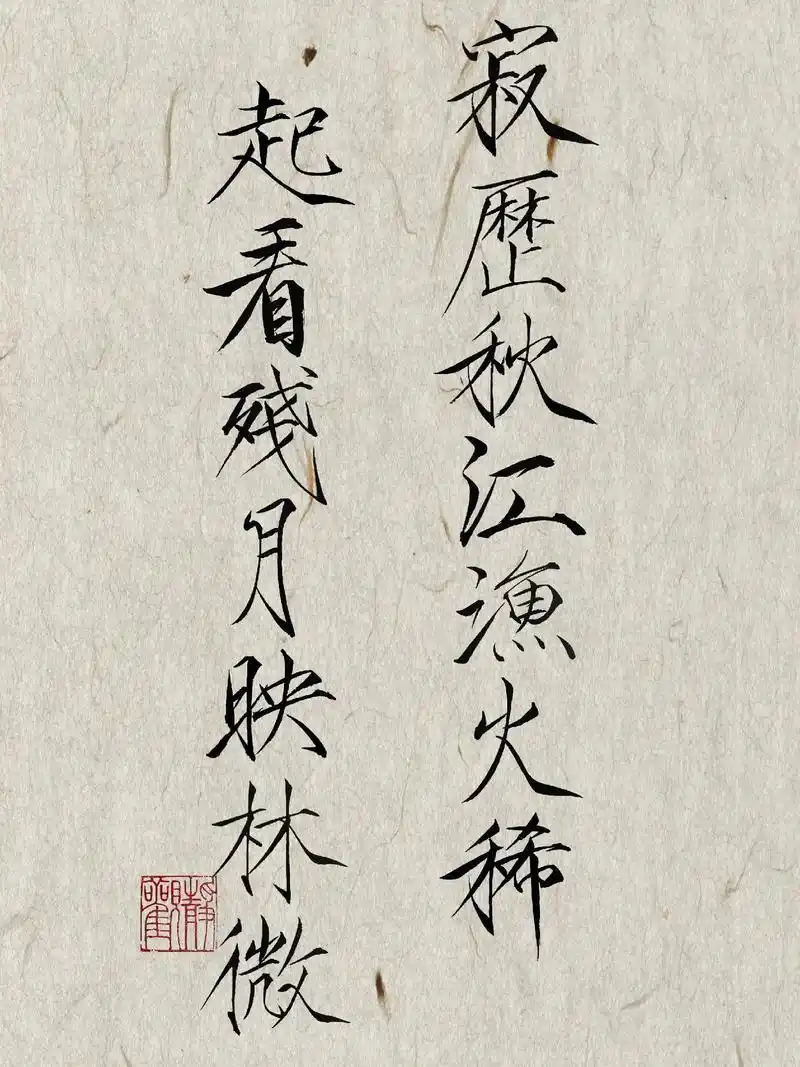 寂歴秋江漁火稀
起看残月映林微
靜觀